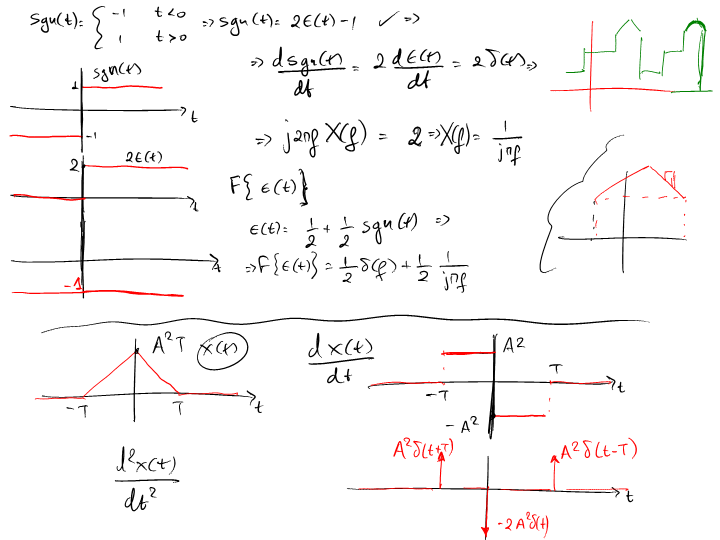 sgn(t) = { -1 t<0 ⇒ sgn(t) = 2ε(t) - 1 ✓ ⇒
1 t>0
⇒ d sgn(t)/dt = 2 dε(t)/dt = 2δ(t) ⇒
sgn(t)
1
t
-1
⇒ j2πf X(f) = 2 ⇒ X(f) = 1/jπf
2
2ε(t)
t
F{ε(t)}
ε(t) = 1/2 + 1/2 sgn(t) ⇒
⇒ F{ε(t)} = 1/2 δ(f) + 1/2 1/jπf
t
-1
A²T
x(t)
-T
T
t
dx(t)/dt
A²
-T
T
t
-A²
d²x(t)/dt²
A²δ(t+T)
A²δ(t-T)
t
-2A²δ(t)